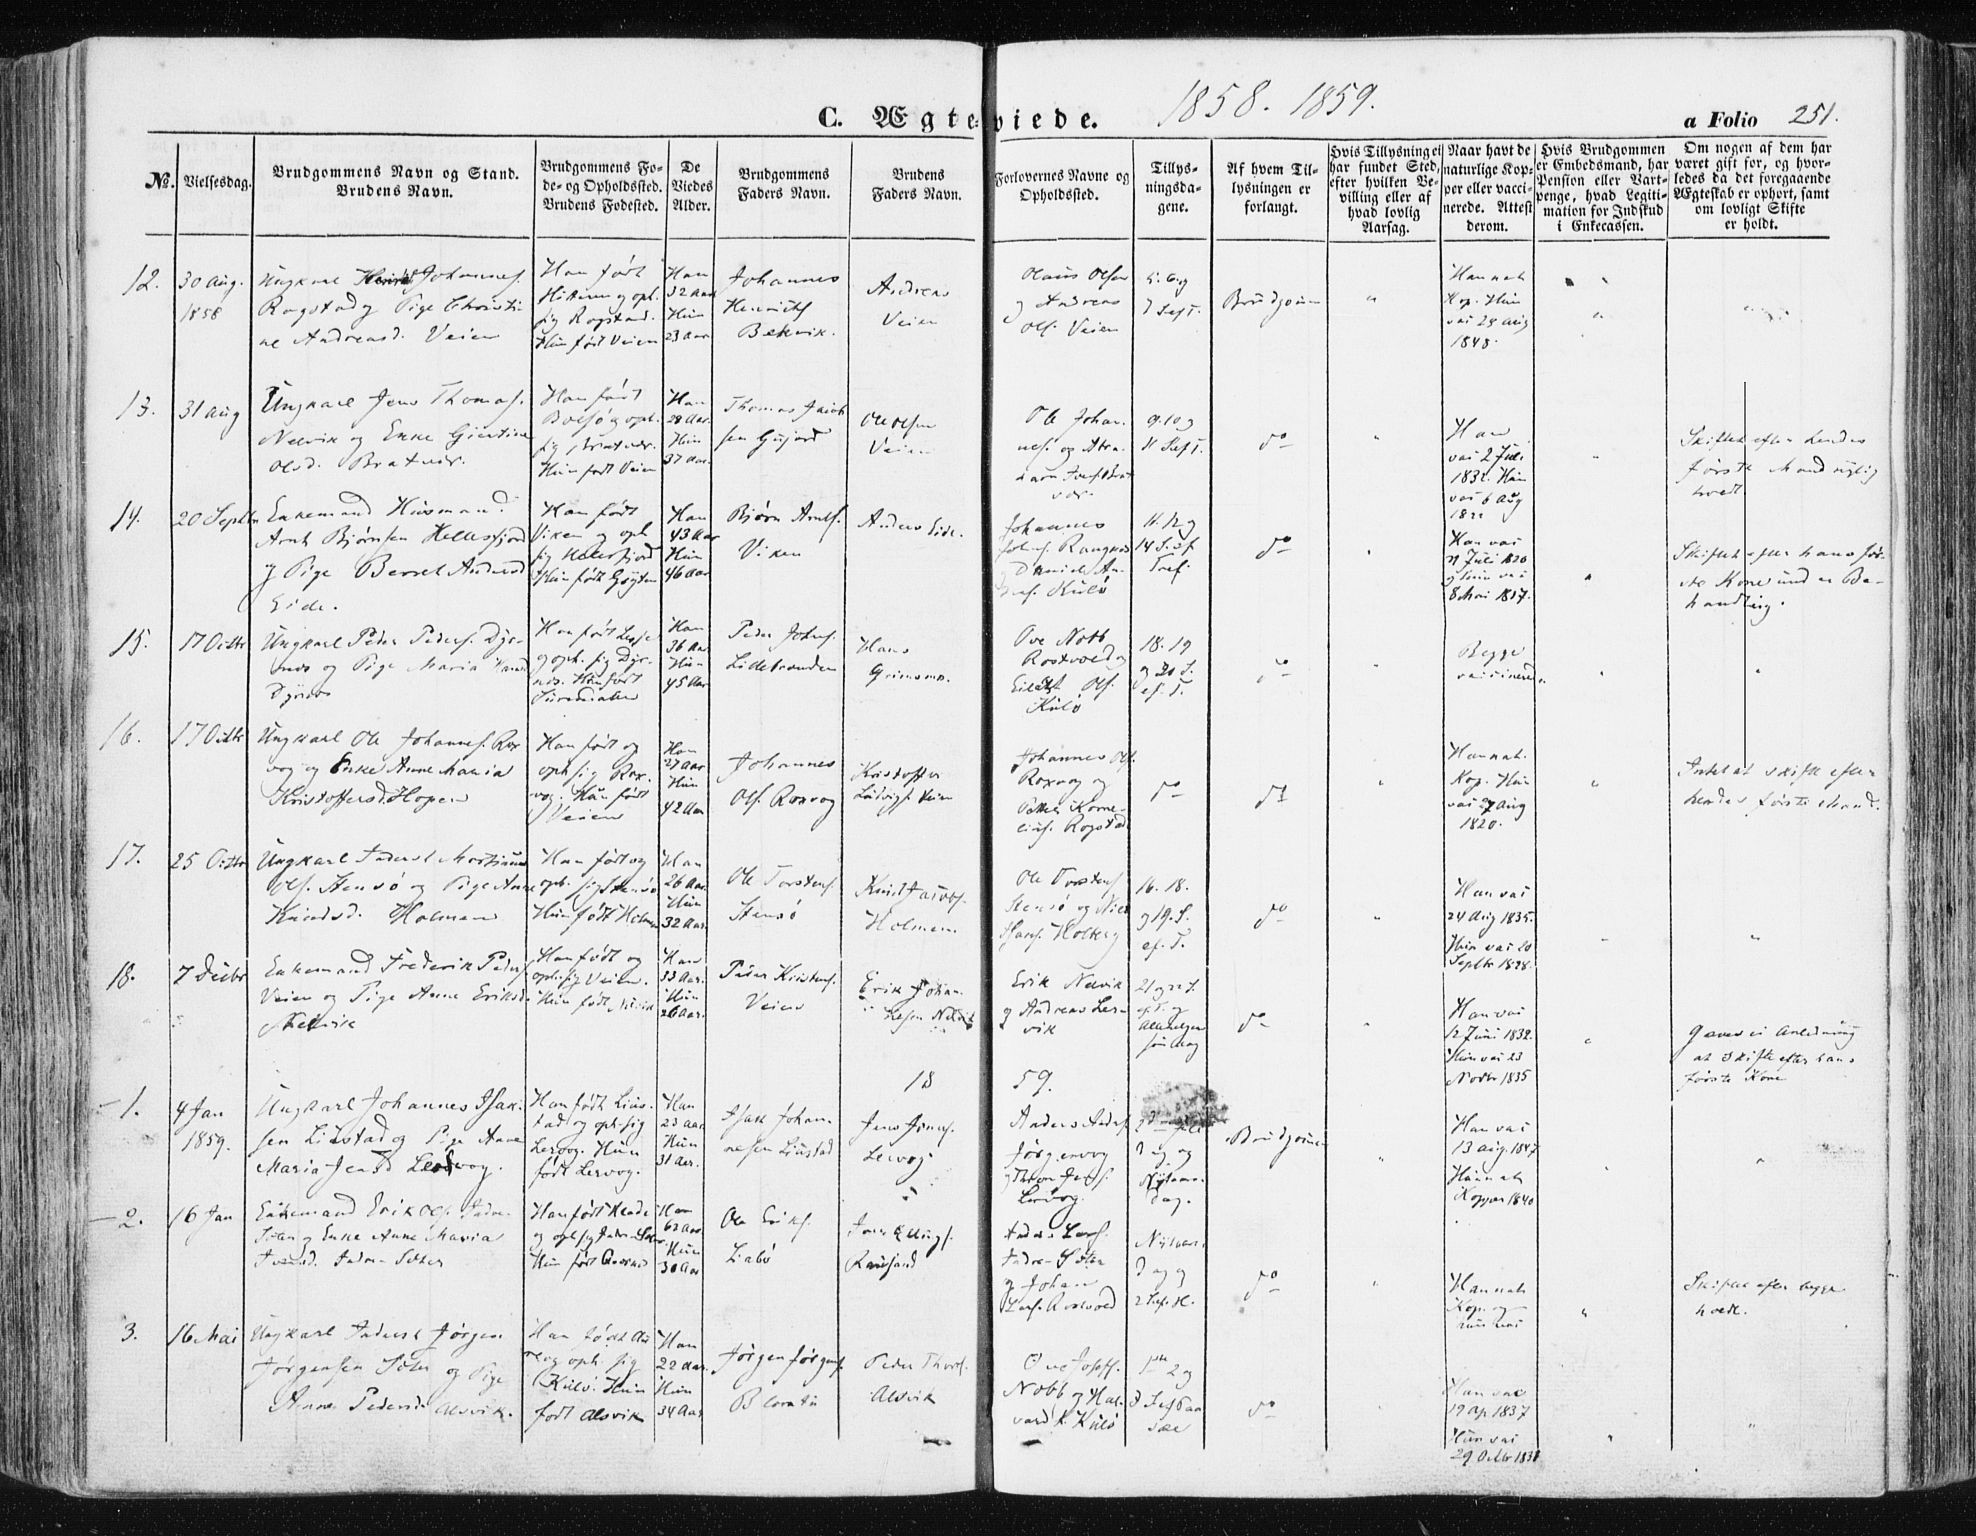 1858. 1859.
C. Ægteviede.
a Folio 251.
No.
Vielsesdag.
Brudgommens Navn og Stand.
Brudens Navn.
Brudgommens Fo-
de- og Opholdssted.
Brudens Fødested.
De
Viedes
Alder.
Brudgommens
Faders Navn.
Brudens
Faders Navn.
Forlovernes Navne og
Opholdssted.
Tillys-
ningsda-
gene.
Af hvem Til-
lysningen er
forlangt.
Hvis Tillysning ei
har fundet Sted,
efter hvilken Be-
villing eller af
hvad lovlig
Aarsag.
Naar havt de
naturlige Kop-
per eller vacci-
nerede. Attest
derom.
Hvis Brudgommen
er Embedsmand, har
Pension eller Vart-
penge, hvad Legiti-
mation for Indskud
i Enkecassen.
Om nogen af dem har
været gift før, og hvor-
ledes da det foregaaende
Ægteskab er ophørt, samt
om lovligt Skifte
er holdt.
12.
30 Aug.
1858
Ungkarl Johannes.
Rogstad og Pige Christi-
ne Andreasd. Veien
Han født
Hitteren og oph.
sig Rogstad.
Hun født Veien
Han
32 Aar
Hun
23 Aar
Johannes
Henrichs
Bekvik.
Andreas
Veien
Olaus Olsen
og Andreas
Ols. Veien
5. 6 og
7 Sept.
Brudgom
Han nat.
Kop. Hun
vac 29 Aug
1848.
13.
31 Aug
Ungkarl Jens Thomas.
Nelvik og Enke Gjertine
Olsd. Bratvær.
Han født
Bolsø og oph.
sig Bratvær.
Hun født Veien
Han
28 Aar
Hun
37 Aar.
Thomas Jacob
sen Gujord
Ole Olsen
Veien
Ole Johan
nes. og Abra
ham
vær.
9. 10 og
11 Sept.
do
Han
vac 2 Juli
1832. Hun
vac 6 Aug
1822
Skiftet efter hendes
første Mand rigtig
hvedt.
14.
20 Septbr
Enkemand Husmand
Arnt Bjørnsen Hellesfjord
og Pige Berret Andersd
Eide.
Han født
Viken og oph
sig Hellesfjord
Hun født
Han
43 Aar
Hun
46 Aar
Bjørn Arnts.
Viken
Anders Eide.
Johannes
Johns.
Kulø
11. 12 og
14 S. ef
Tref.
do
Han vac
Juli 1820
og Hun vac
8 Mai 1817.
Skiftet efter hans før-
ste Kone und er Be-
handling.
15.
17 Octbr
Ungkarl Peder Peders. Dyr-
næs og Pige Maria Hansd
Dyrnæs
Han født Lesje
og oph. sig Dyr-
næs. Hun født
Surendalen
Han
36 Aar
Hun
45 Aar
Peder Johns.
Lidebranden
Hans
Grimsmo.
Ove Nobb
Rostvold og
Ols.
Kulø
18. 19
og 20 S.
ef. T.
do
Begge
vaccinerede
16.
17 Octbr
Ungkarl Ole Johannes. Rox
vog og Enke Anne Maria
Kristoffersd. Hopen
Han født og
oph. sig Rox-
vog. Hun født
Veien
Han
27 Aar
Hun
42 Aar
Johannes
Ols. Roxvog
Kristoffer
Ludvigs. Veien
Johannes Ols.
Roxvog og
Peter Korne-
lius. Rogstad
do
do
Han nat.
Kop. Hun
vac 27 Aug
1820.
Intet at skifte efter
hendes første Mand.
17.
25 Octbr
Ungkarl Inderst Mortinus
Ols. Stensø og Pige Anne
Knudsd. Holmen
Han født og
oph. sig Stensø
Hun født Holmen
Han
26 Aar.
Hun
32 Aar.
Ole Torstens.
Stensø
Knud Jacobs.
Holmen.
Ole Torstens.
Stensø og Niels
Hans. Holberg
16. 18.
og 19. S.
ef. T.
do
Han vac
24 Aug 1835.
Hun vac 20
Septbr 1828.
18.
7 Decbr
Enkemand Frederik Peders.
Veien og Pige Anne Eriksd
Nelvik
Han født og
oph. sig Veien.
Hun født Nelvik
Han
33 Aar.
Hun
26 Aar.
Peder Kristens.
Veien
Erik Johan-
nesen Nelvik
Erik Nelvik
og Andreas Ler-
vik
21 og 22 S.
ef. T. og
Allehelgen
søndag
do
Han vac
12 Juni 1832.
Hun vac 23
Novbr 1835
Gaves ei Anledning
at skifte efter hans
første Kone
18 59.
1.
4 Jan
1859.
Ungkarl Johannes Isak-
sen Liustad og Pige Anne
Maria Jensd Lervog.
Han født Lius-
tad og oph. sig
Lervog. Hun
født Lervog.
Han
23 Aar
Hun
31 Aar.
Isak Johan-
nesen Liustad
Jens Jens.
Lervog
Anders Anders.
Jørgenvog
og Jens.
Lervog.
2den Jule
dag og
Nytaars
dag.
Brudgom
Han vac
13 Aug. 1847
Hun nat
Kopper 1840
2.
16 Jan
Enkemand Erik Ols. Indre-
Soter og Enke Anne Maria
Indre-Soter
Han født
og oph. sig Indre-Soter
Hun født
Han
62 Aar
Hun
30 Aar
Ole Eriks.
Liabø
Jens Ellings.
Raudsand
Anders Lars.
Indre-Soter
og Johan
Lars. Rostvold
Nytaars
dag og
2 S. ef. H.
do
Han nat.
Kop. og
hun vac
Skiftet efter begge
hvedt.
3.
16 Mai
Ungkarl Inderst Jørgen
Jørgensen Soter og Pige
Anne Pedersd. Alsvik.
Han født Au
re og oph. sig
Kulø. Hun
født Alsvik
Han
22 Aar.
Hun
34 Aar
Jørgen Jørgens.
Peder Thors.
Alsvik
Ove Joss.
Nobb og Hal-
vard K. Kulø
1ste 2 og
3 S. ef Paa
ske
do
Han vac
19 Ap 1837
Hun vac
29 Octbr 1838